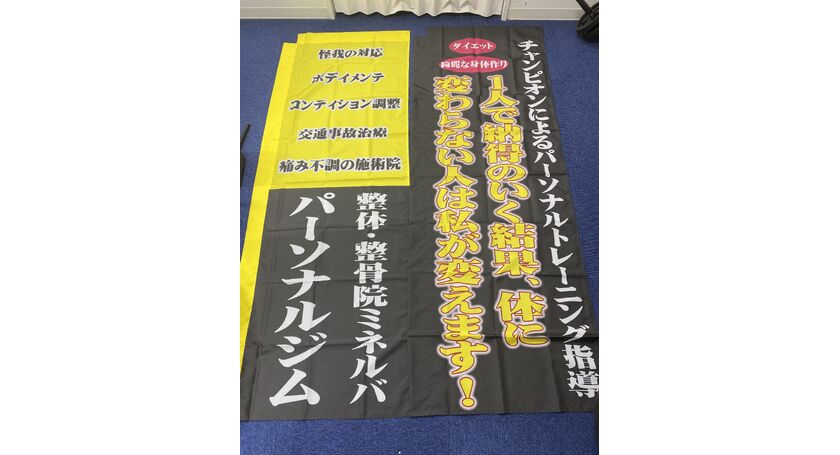 チャンピオンによるパーソナルトレーニング指導
ダイエット
綺麗な身体作り
1人で納得のいく結果、体に
変わらない人は私が変えます!
怪我の対応
ボディメンテ
コンディション調整
交通事故治療
痛み不調の施術院
整体・整骨院ミネルバ
パーソナルジム